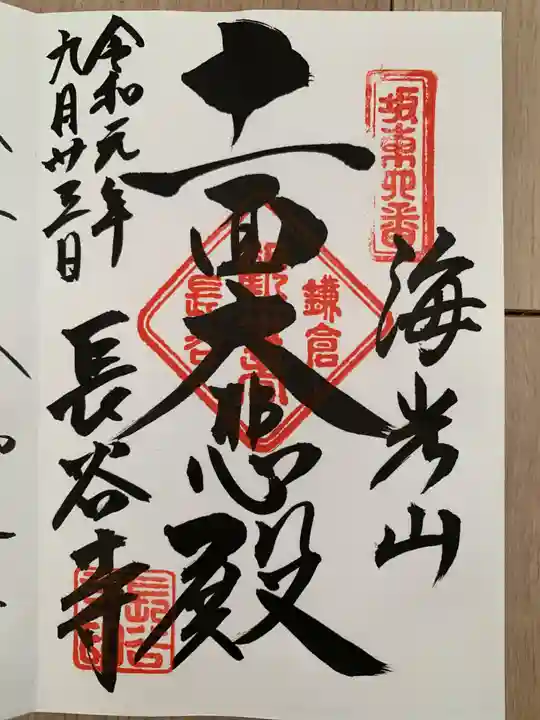 坂東四番
海光山
鎌倉
十一面大悲殿
長谷
令和元年
九月廿三日
長谷寺